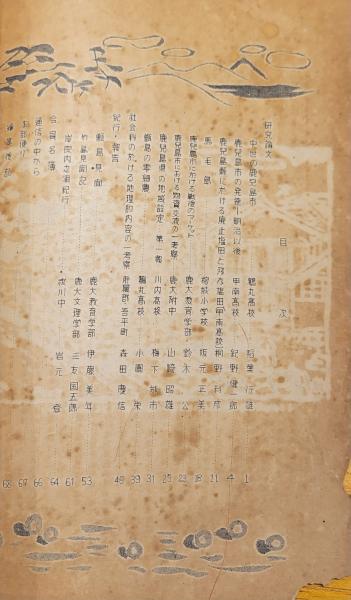 目次
研究論文
中世の鹿児島市 鶴丸高校 稲葉行雄 1
鹿児島市の発達―明治以後 甲南高校 紀野健一郎 4
鹿児島湾に於ける廃止塩田と残存塩田 甲南高校 桐野利彦 11
馬毛島 榕城小学校 坂元正美 18
鹿児島市における戦後のマーケット 鹿大教育学部 鈴木公 23
鹿児島市における物資交流の一考察 鹿大附中 山崎昭雄 25
鹿児島県の地域設定 第一報 川内高校 梅下 市 31
甑島の零細農 鶴丸高校 小園栄 39
社会科の於ける地理的内容の一考察 肝属郡吾平町 森田慶信 49
紀行・報告
甑島見聞 鹿大教育学部 伊藤 年 53
竹島見聞記 鹿大文理学部 三友国五郎 61
岸良内之浦紀行 城川中 岩元 64
会員名簿 66
通信の中から 67
支部便り 68
編集後記